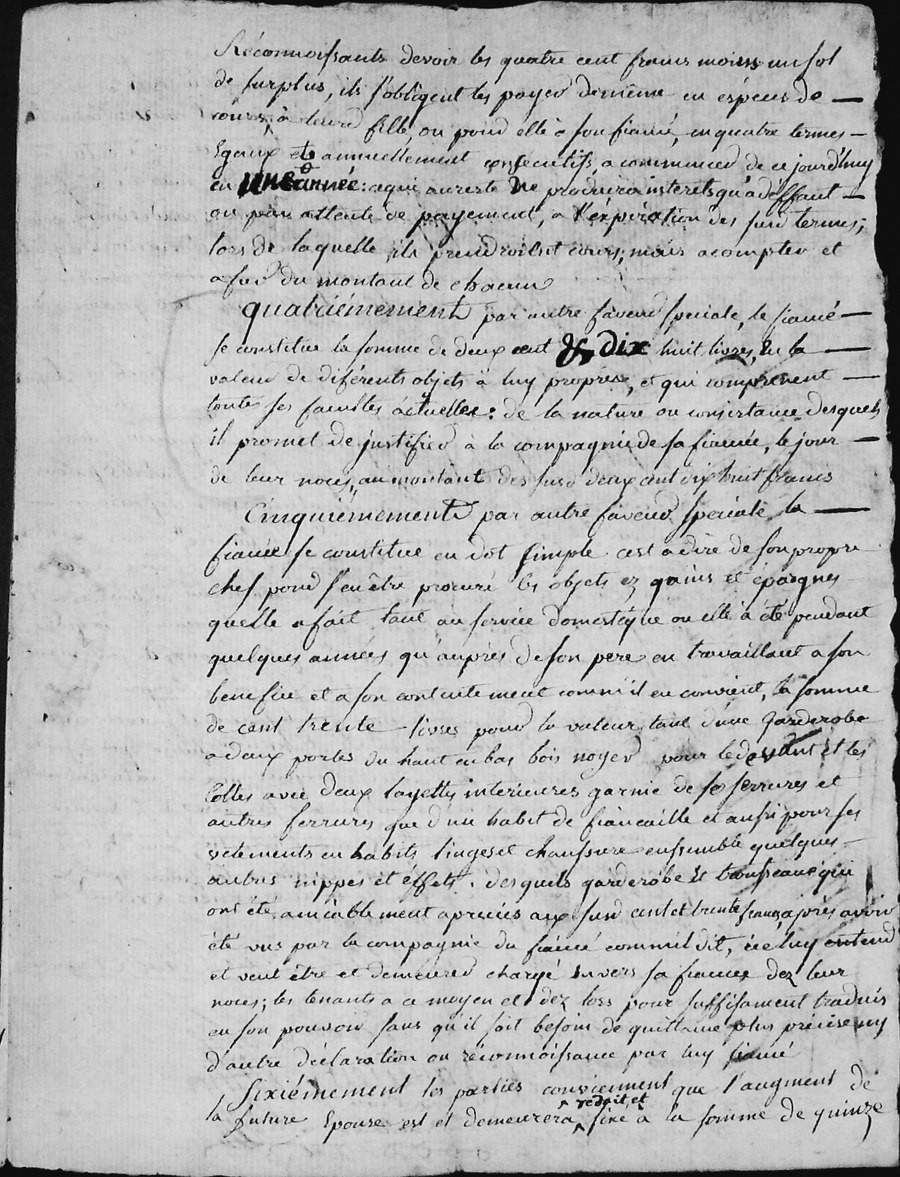 Réconnoissants devoir les quatre cent francs moins un sol
de surplus, ils s'obligent les payer de même en espéces de
cours, à leurd fille, ou pour elle à son fiancé, en quatre termes
Egaux et annuellement consecutifs a commencer de ce jourd'huy
en une année: ce qui au reste ne produira interets qu'a deffaut
ou par attente de payement, a l'expiration des susd termes;
lors de laquelle ils prendroient cours; mais a compter et
a fur du montant de chacun
quatriémement par autre faveur speciale, le fiancé
se constitue la somme de deux cent & dix huit livres, en la
valeur de diférents objets à luy propres, et qui comprenent
toute ses facultes actuelles: de la nature ou consistance desquels
il promet de justifier à la compagnie de sa fiancée, le jour
de leur noces, au montant des susd deux cent dix huit francs
Cinquiémement par autre faveur speciale la
fiancée se constitue en dot simple c'est a dire de son propre
chef pour s'en être procuré les objets ez gains et épargnes
quelle a fait tant au service domestique ou elle à été pendant
quelques années qu'aupres de son pere en travaillant a son
benefice et a son contentement comm'il en convient, la somme
de cent trente livres pour la valeur tant d'une garderobe
a deux portes du haut en bas bois noyer pour le devant et les
Cottes avec deux layettes interieures garnie de ses serrures et
autres ferrures que d'un habit de fiancaille et aussi pour ses
vetements en habits linges et chaussure ensemble quelques
autres nippes et éffets. desquels garderobe et trousseau qui
ont été amiablement apreciés aux susd cent et trente francs, après avoir
été vus par la compagnie du fiancé comm'il dit, icé luy entend
et veut être et demeurer chargé envers sa fiancée dez leur
noces; les tenants a ce moyen et dez lors pour suffisament traduis
en son pouvoir sans qu'il soit besoin de quittance plus précise ny
d'autre déclaration ou réconnoissance par luy fiancé
Sixiémement les parties conviennent que l'augment de
la future Epouse est et demeurera reduit et fixé à la somme de quinze